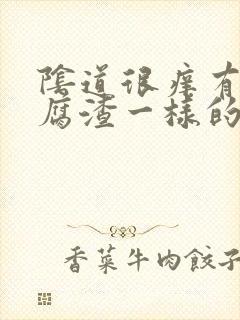 陰道很痒有
腐渣一樣的
香菜牛肉餃子